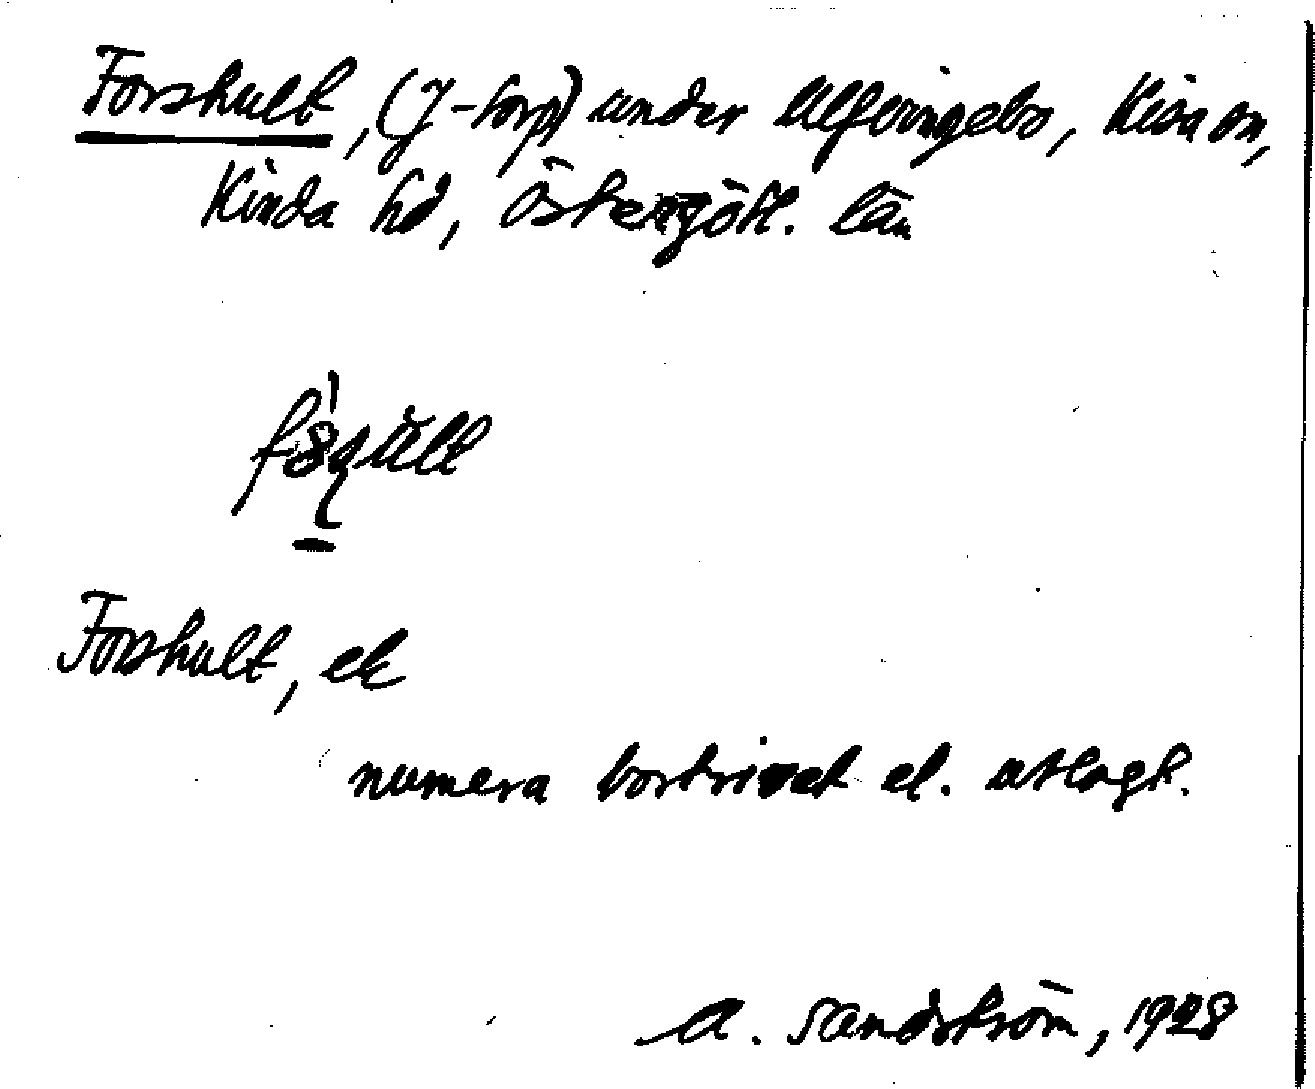 Forshult, (J-torp) under Ulfvingebo, Kisa sn,
Kinda hd, Östergötl. län
Forshult, ek
numera bortrivet el. utlagt.
A. Sandström, 1928